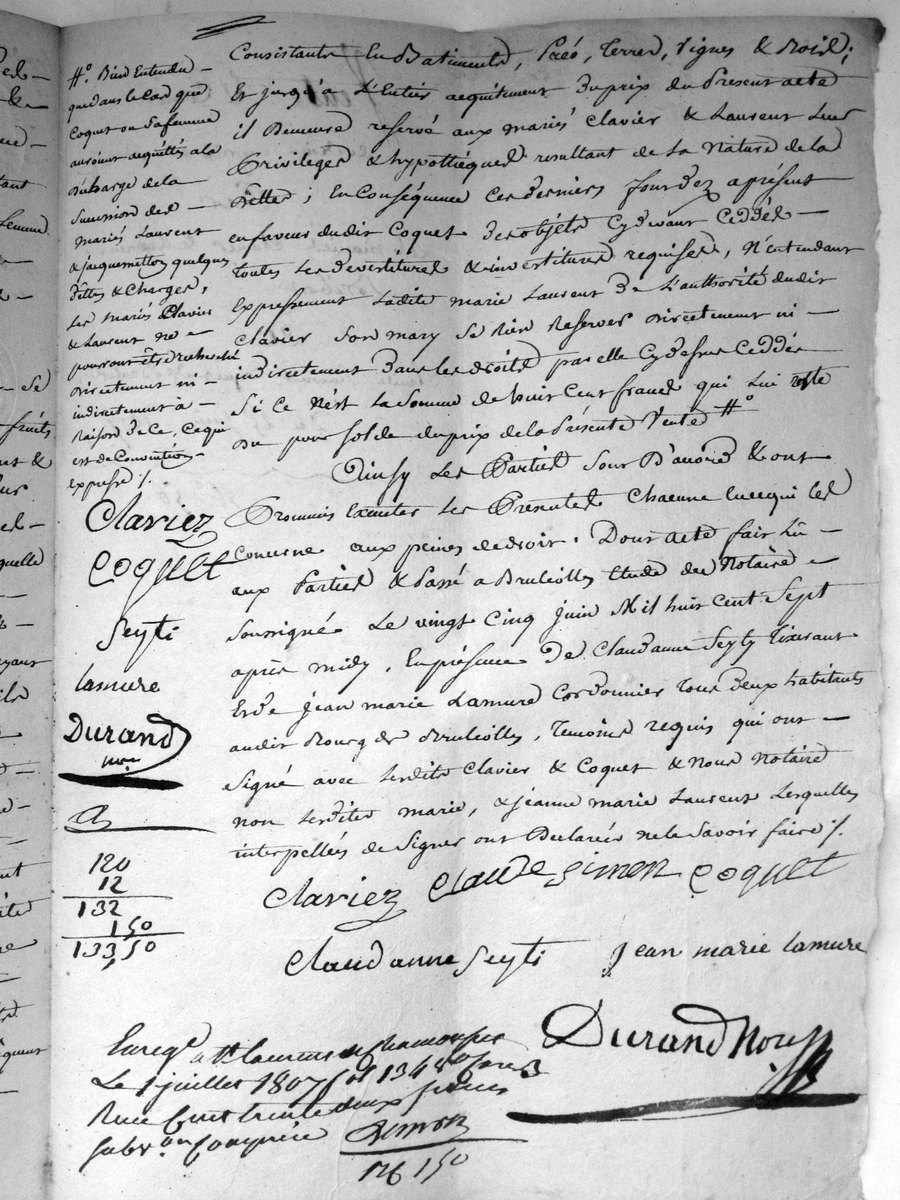 Consistants En Batiments, Préó, Terres, Vignes & Bois;
Et jusqu'a L'Entier acquitement Duprix du Present acte
il Demeure reservé aux mariés Clavier & Laurent Leur
Privileges & hypothéques resultant de La Nature de la
Dette; En Conséquence Ces derniers aprésent
enfaveur dudit Coquet Des objets Cydevant Ceddés —
Toutes Les Devestitures & investitures requises, N'entendant
Expressement Ladite marie Laurent De L'authorité dudit
Clavier Son mary Se Rien Reserver Directement ni —
indirectement Dans les droits par elle Cydessus Ceddés
Si Ce N'est La Somme de huit Cent francs qui Lui reste
Du pour Solde du prix de la Présente Vente #o
Ainsy Les Parties Sont D'accord & ont
Promis Executer Les Presentes Chacune En ce qui les
Concerne aux peines de droit. Dont acte fait Lu —
aux Parties & Passé a Brullolles Etude du Notaire —
Soussigné Le vingt Cinq juin Mil huit Cent Sept
après midy, En présence De Claudanne Seyty Tixerant
Et de jean marie Lamure Cordonnier Tous deux habitants
audit Bourg de Brullolles, Temoins requis qui ont —
Signé avec Lesdits Clavier & Coquet & Nous Notaire
non Lesdites marie, & jeanne marie Laurent Lesquelles
interpellées de Signer ont Declarées ne le Savoir faire /.
Claviez Claude Simon Coquet
Claudanne Seyti Jean marie lamure
Durand Nore
#o. Bien Entendu —
que dans le Cas que
Coquet ou Sa femme
auroient acquittés a la
Décharge de la
Succession des —
mariés Laurent
& jacquemetton quelques
Dettes & Charges,
Les mariés Clavier
& Laurent ne —
pourront être recherchés
Directement ni —
indirectement à —
Raison de Ce, Ce qui
est de Convention —
expresse /.
Claviez
Coquet
Seyti
lamure
Durand
nre
120
12
132
1,50
133,50
Enregé a St laurent de Chamousset
Le 1 juillet 1807 fol 134
Reçu Cent trente deux francs
subvon Comprise
Simon